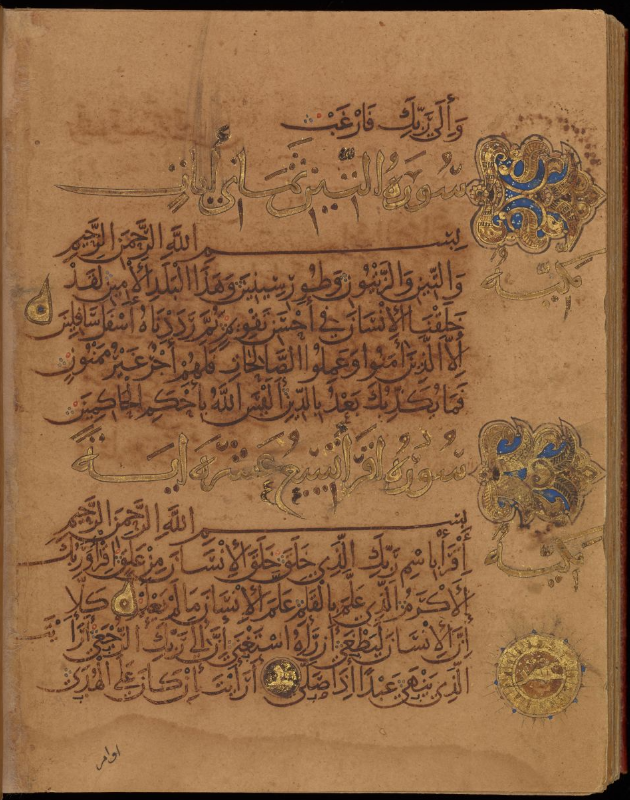 وَإِلَى رَبِّكَ فَارْغَبْ
سُورَةُ التِّينِ ثَمَانِي آيَاتٍ
مكية
بِسْمِ اللَّهِ الرَّحْمَنِ الرَّحِيمِ
وَالتِّينِ وَالزَّيْتُونِ وَطُورِ سِينِينَ وَهَذَا الْبَلَدِ الْأَمِينِ لَقَدْ
خَلَقْنَا الْإِنْسَانَ فِي أَحْسَنِ تَقْوِيمٍ ثُمَّ رَدَدْنَاهُ أَسْفَلَ سَافِلِينَ
إِلَّا الَّذِينَ آمَنُوا وَعَمِلُوا الصَّالِحَاتِ فَلَهُمْ أَجْرٌ غَيْرُ مَمْنُونٍ
فَمَا يُكَذِّبُكَ بَعْدُ بِالدِّينِ أَلَيْسَ اللَّهُ بِأَحْكَمِ الْحَاكِمِينَ
سُورَةُ اقْرَأْ تِسْعَ عَشْرَةَ آيَةً
مكية
بِسْمِ اللَّهِ الرَّحْمَنِ الرَّحِيمِ
اقْرَأْ بِاسْمِ رَبِّكَ الَّذِي خَلَقَ خَلَقَ الْإِنْسَانَ مِنْ عَلَقٍ اقْرَأْ وَرَبُّكَ
الْأَكْرَمُ الَّذِي عَلَّمَ بِالْقَلَمِ عَلَّمَ الْإِنْسَانَ مَا لَمْ يَعْلَمْ كَلَّا
إِنَّ الْإِنْسَانَ لَيَطْغَى أَنْ رَآهُ اسْتَغْنَى إِنَّ إِلَى رَبِّكَ الرُّجْعَى أَرَأَيْتَ
الَّذِي يَنْهَى عَبْدًا إِذَا صَلَّى أَرَأَيْتَ إِنْ كَانَ عَلَى الْهُدَى
او امر